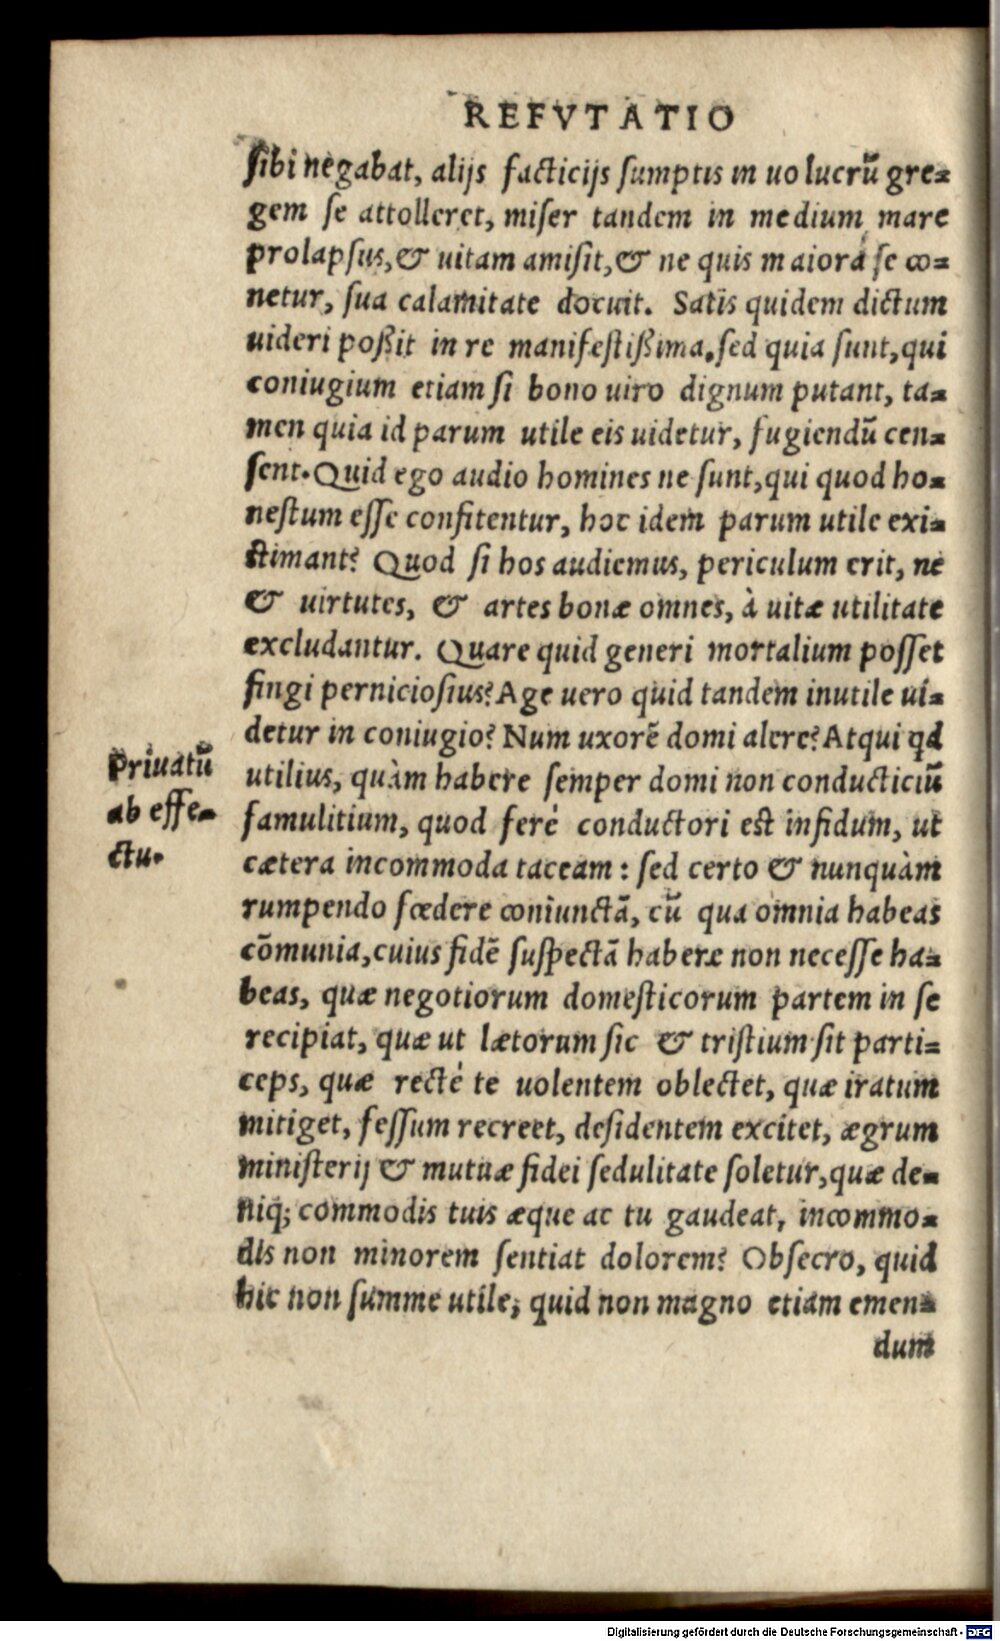 REFVTATIO
sibi negabat, alijs facticijs sumptis in uolucrũ gre-
gem se attolleret, miser tandem in medium mare
prolapsus, & uitam amisit, & ne quis maiora se co-
netur, sua calamitate docuit. Satis quidem dictum
uideri poßit in re manifestißima, sed quia sunt, qui
coniugium etiam si bono uiro dignum putant, ta-
men quia id parum utile eis uidetur, fugiendũ cen-
sent. Quid ego audio homines ne sunt, qui quod ho-
nestum esse confitentur, hoc idem parum utile exi-
stimant? Quod si hos audiemus, periculum erit, ne
& uirtutes, & artes bonæ omnes, à uitæ utilitate
excludantur. Quare quid generi mortalium posset
fingi perniciosius? Age uero quid tandem inutile ui-
detur in coniugio? Num uxorẽ domi alere? Atqui qd
Priuatũ
ab effe-
ctu.
utilius, quàm habere semper domi non conducticiũ
famulitium, quod ferè conductori est infidum, ut
cætera incommoda taceam : sed certo & nunquàm
rumpendo fœdere coniunctã, cũ qua omnia habeas
cõmunia, cuius fidẽ suspectã habere non necesse ha-
beas, quæ negotiorum domesticorum partem in se
recipiat, quæ ut lætorum sic & tristium sit parti-
ceps, quæ rectè te uolentem oblectet, quæ iratum
mitiget, fessum recreet, desidentem excitet, ægrum
ministerij & mutuæ fidei sedulitate soletur, quæ de-
niq; commodis tuis æque ac tu gaudeat, incommo-
dis non minorem sentiat dolorem? Obsecro, quid
hic non summe utile; quid non magno etiam emen-
dum
Digitalisierung gefördert durch die Deutsche Forschungsgemeinschaft - DFG